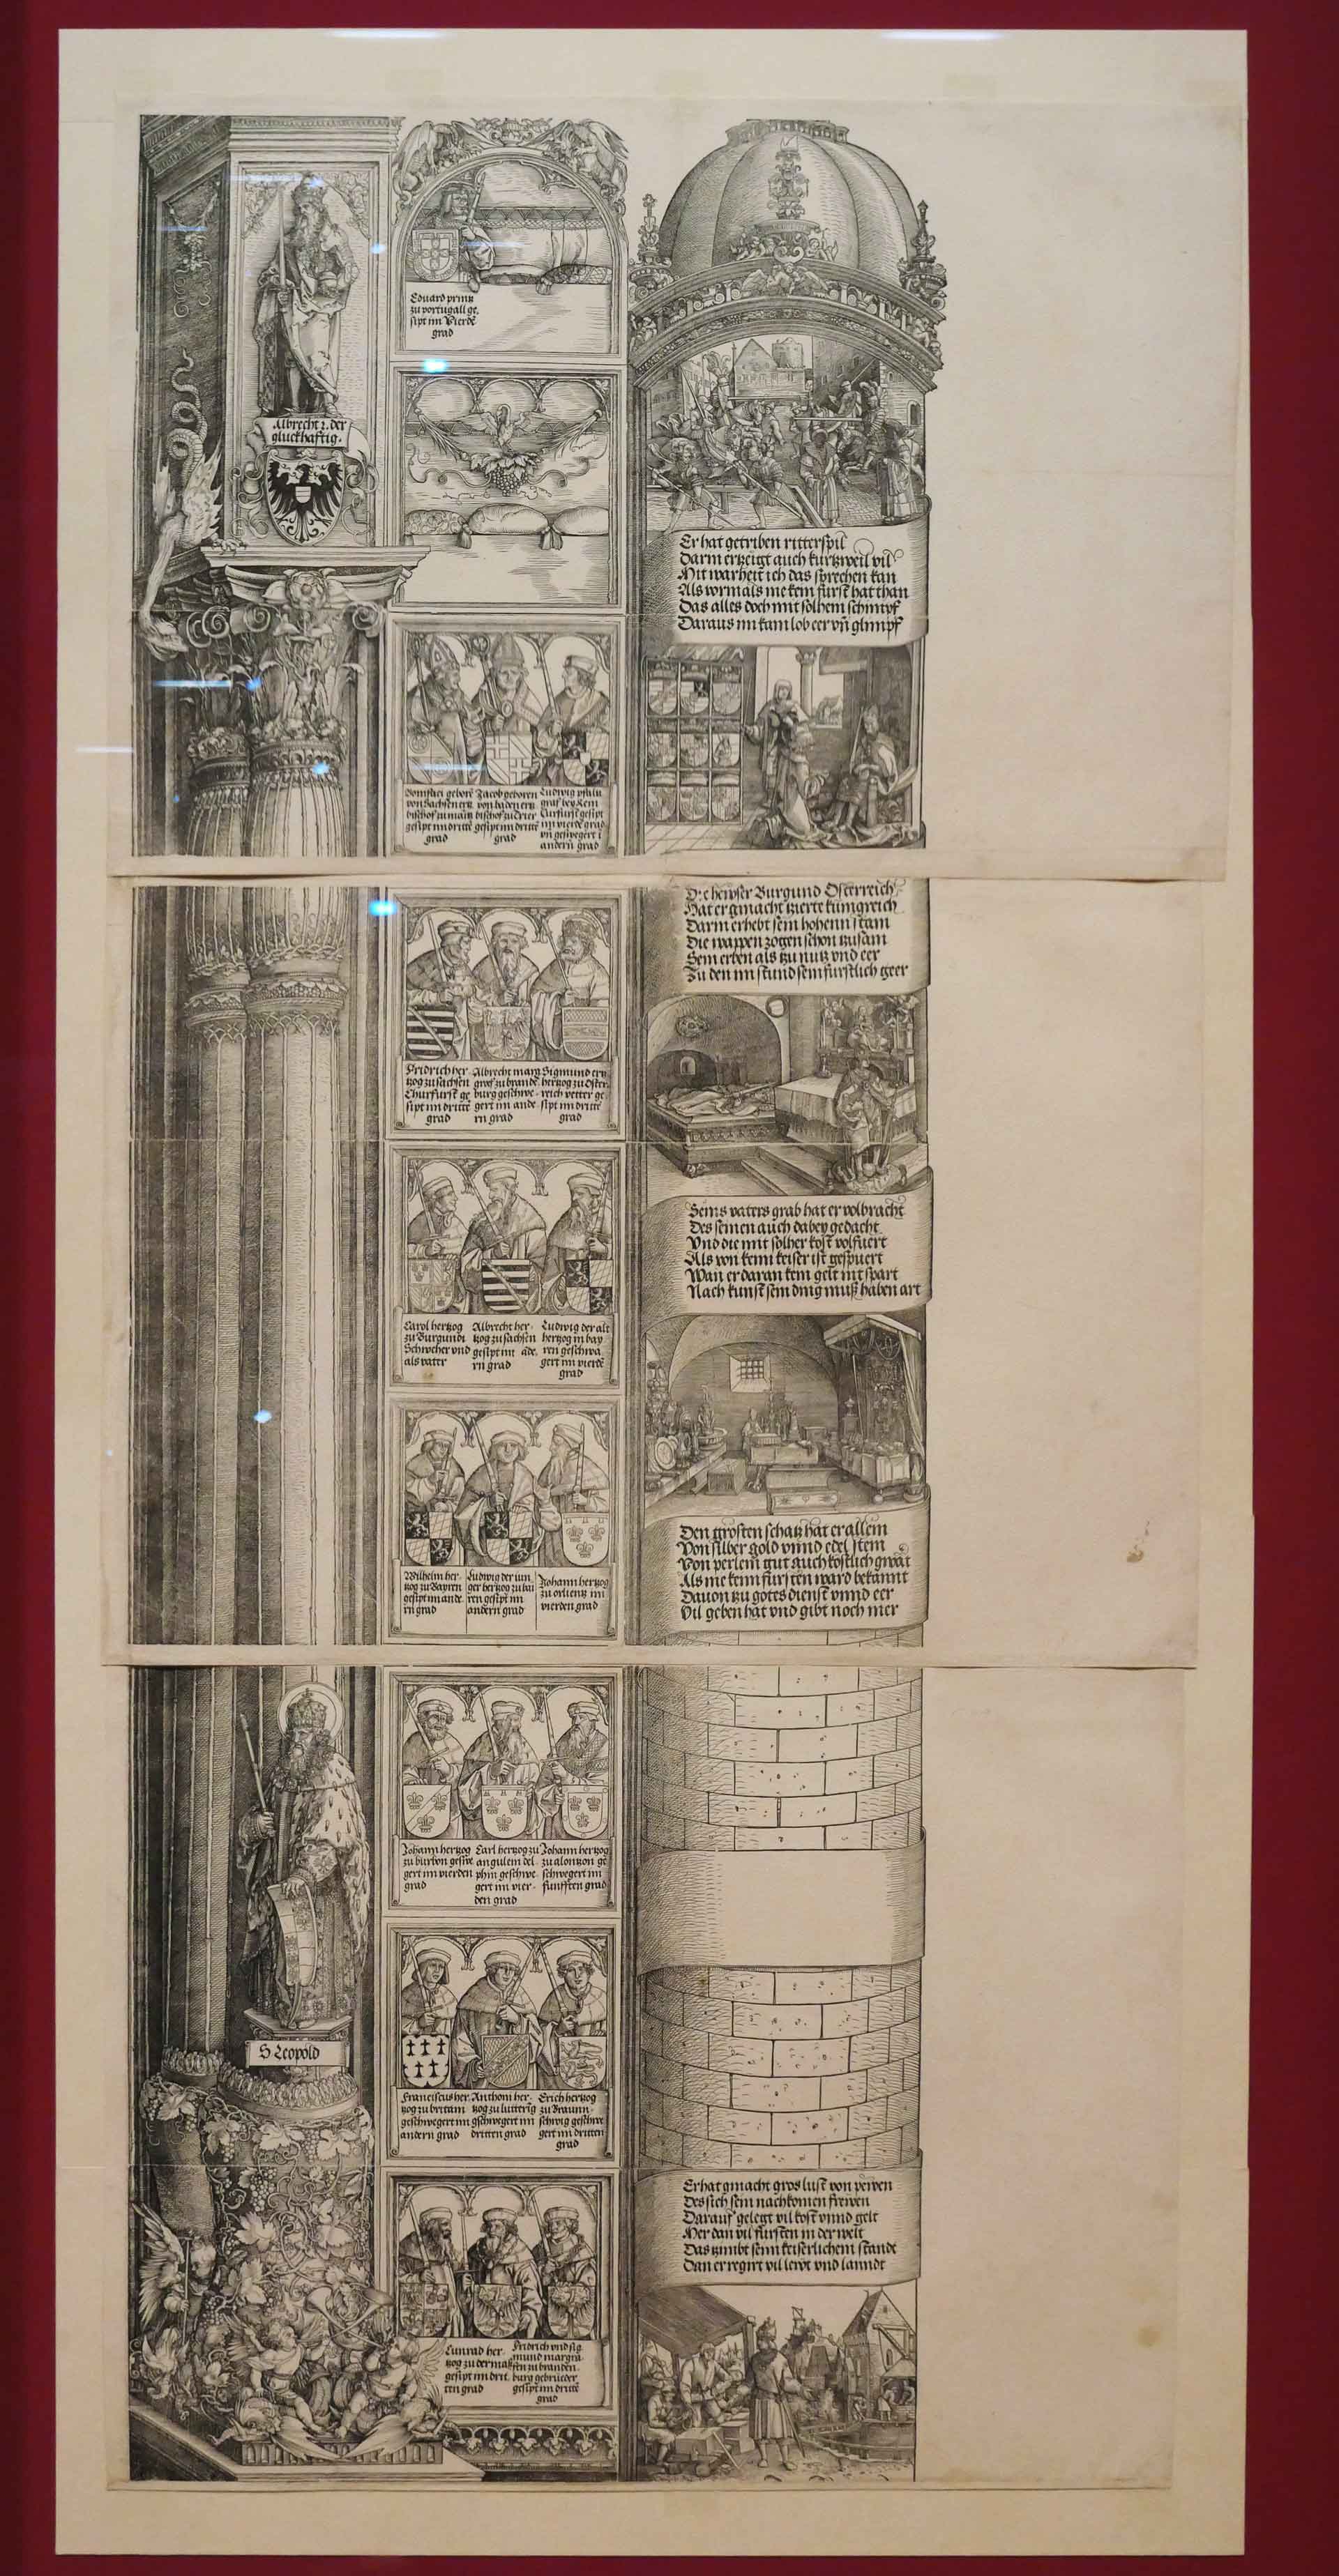 Albrecht 2. der
gluckhafftig.
Eduard printz
zu portugall ge,
sipt im Vierdē
grad
Er hat getriben ritterspil
Darin ertzeigt auch kurtzweil vil
Mit warheit ich das sprechen kan
Als vormals nie kein fürst hat than
Das alles doch mit solhem schimpf
Daraus im kam lob eer vn̄ glimpf
geborē
von Sachsen ertz
bischof zu maintz
gesipt im dritte
grad
Jacob geboren
von baden ertz
bischof zu Trier
gesipt im dritte
grad
Ludwig pfaltz
graf bey Rein
Curfürst gesipt
im vierdē grad
vn̄ geswegert i
andern grad
Die hewser Burgund Osterreich
Hat er gmacht tzierte kunigreich
Darin erhebt sein hohenn stam
Die wappen zogen schon tzusam
Sein erben als tzu nutz vnd eer
Zu den im stund sein furstlich geer
Fridrich her
tzog zu sachsen
Churfurst ge
sipt im dritte
grad
Albrecht marg
graf zu brande
burg geschwe
gert im ande
rn grad
Sigmund ertz
hertzog zu Oster
reich vetter ge
sipt im dritte
grad
Seins vaters grab hat er volbracht
Des seinen auch dabey gedacht
Vnd die mit solher kost volfuert
Als von keim keiser ist gespuert
Wan er daran kein gelt nit spart
Nach kunst sein ding muß haben art
Carol hertzog
zu Burgundi
Schwecher vnd
als vater
Albrecht her
tzog zu sachsen
gesipt im āde,
rn grad
Ludwig der alt
hertzog in bay
ren geschwa
gert im vierdē
grad
Den grosten schatz hat er allein
Von silber gold vnnd edel stein
Von perlein gut auch kostlich gwāt
Als nie keim fursten ward bekannt
Dauon tzu gotes dienst vnnd eer
Vil geben hat vnd gibt noch mer
Wilhelm her
tzog zu Bayren
gesipt im ande
rn grad
Ludwig der iun
ger hertzog zu bai
ren gesipt im
andern grad
Johann hertzog
zu orlientz im
vierden grad
S Leopold
Johann hertzog
zu burbon geswe
gert im vierden
grad
Carl hertzog zu
angulem del
phin geschwe
gert im vier
den grad
Johann hertzog
zu alontzon ge
schwegert im
funfften grad
Franciscus her
tzog zu britani
geschwegert im
andern grad
Anthoni her
tzog zu luttrig
gschwegert im
dritten grad
Erich hertzog
zu Braunn
schwig geschwe
gert im dritten
grad
Er hat gmacht gros lust von pewen
Des sich sein nachkomen frewen
Darauf gelegt vil kost vnnd gelt
Mer dan vil fursten in der welt
Das tzimbt seim keiserlichem standt
Dan er regirt vil lewt vnd lanndt
Cunrad her
tzog zu der maß
gesipt im drit
ten grad
Fridrich vnd sig
mund margra
fen zu branden
burg gebrueder
gesipt im dritte
grad